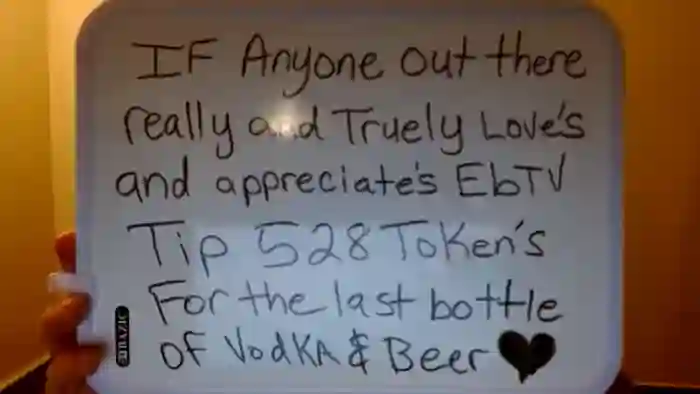 IF Anyone out there
really and Truely Love's
and appreciate's EbTV
Tip 528 Token's
For the last bottle
of Vodka & Beer